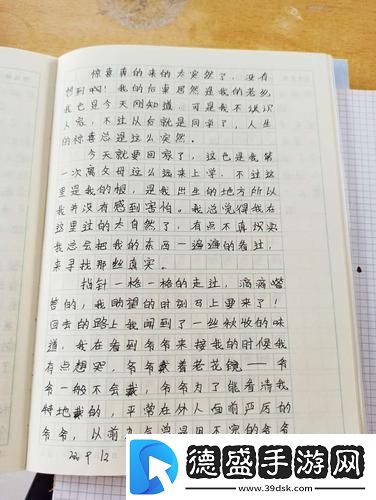 惊喜真的来的太突然了，没有
想到啊！我的后桌居然是我的老乡
我也是今天刚知道，可是我不认识
人家，不过从后就是同学了，人生
的惊喜总是这么突然。
今天就要回家了，这也是我第
一次离父母这么远来上学，不过这
里是我的根，是我出生的地方所以
我并没有感到害怕。我总觉得我在
这里过的太自然了，有点不真切实
我总会把我的东西一遍遍的看过，
来寻找那丝真实。
指针一格一格的走过，滴滴嗒
嗒的，我盼望的时刻马上要来了！
回去的路上我闻到了一丝秋收的味
道，我在看到爷爷来接我的时候我
有点想哭，爷爷戴着老花镜——爷
爷一般不会戴，爷爷为了能看清我
特地戴的，平常在外人面前严厉的
爷爷，以前
9 12
德盛手游网
www.39dsk.com